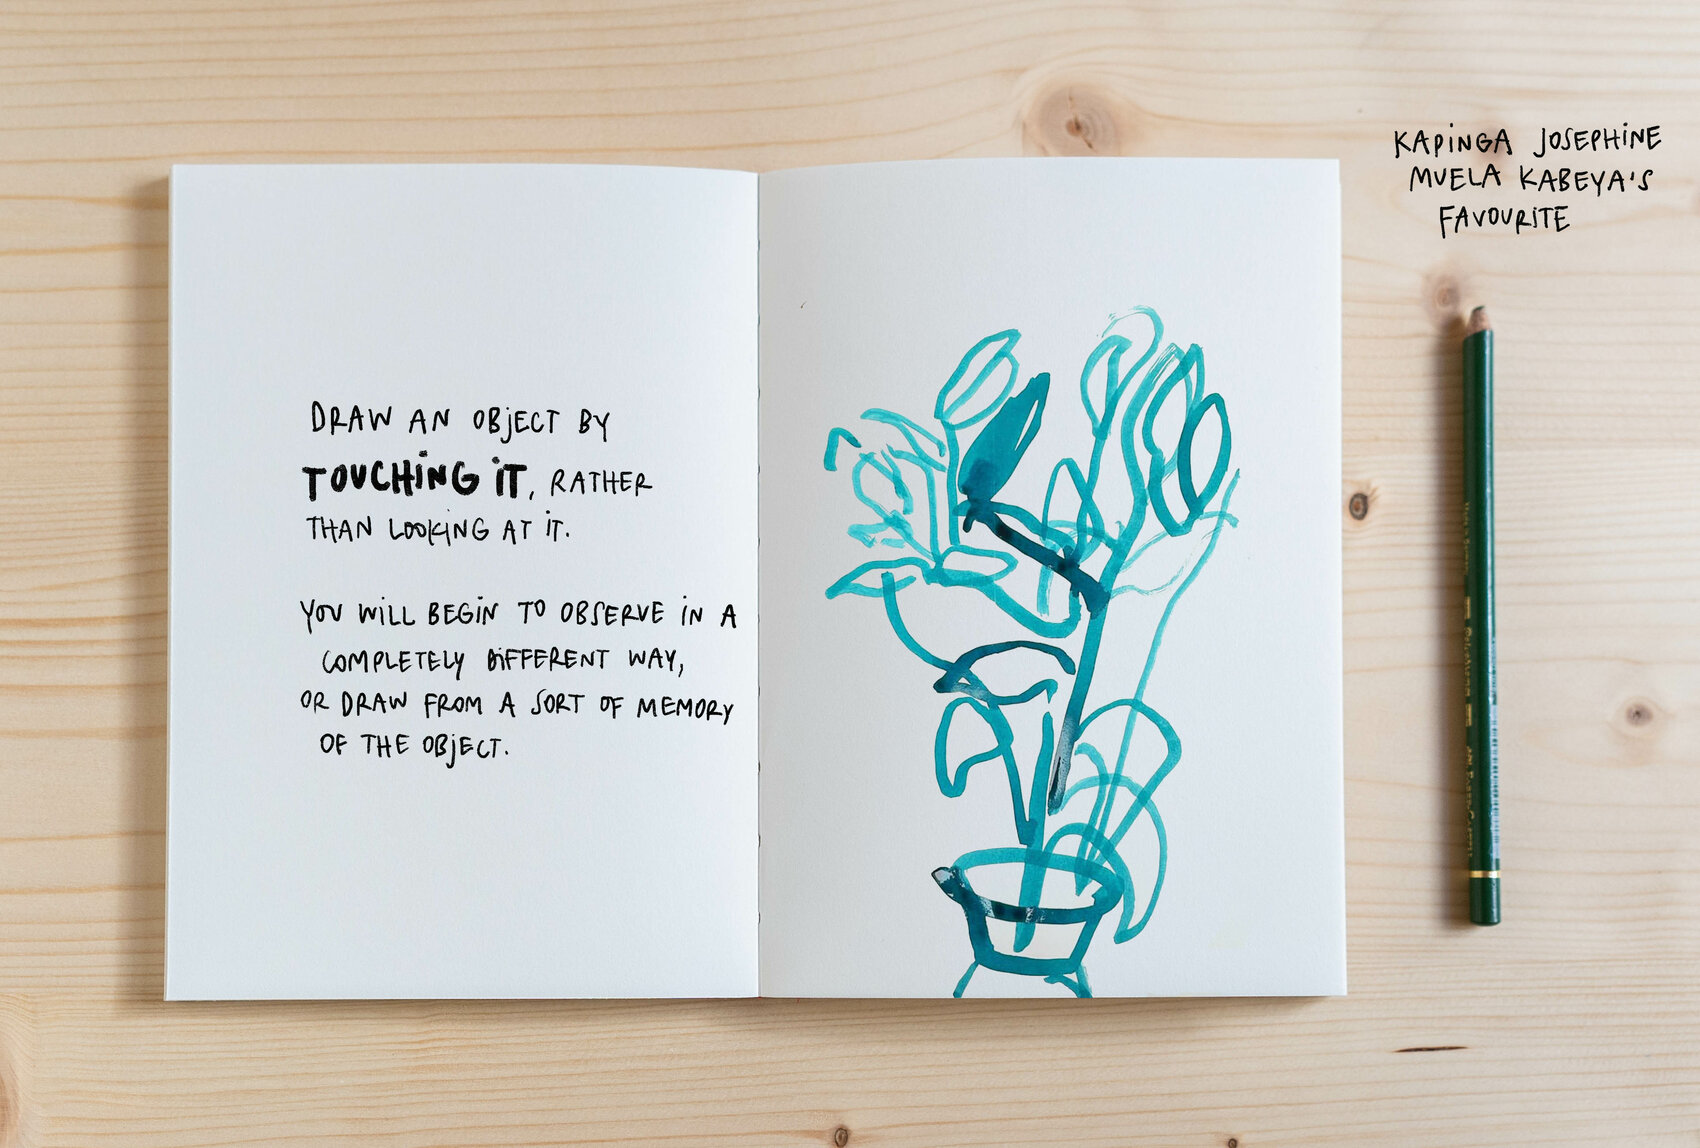 DRAW AN OBJECT BY
TOUCHING IT, RATHER
THAN LOOKING AT IT.
YOU WILL BEGIN TO OBSERVE IN A
COMPLETELY DIFFERENT WAY,
OR DRAW FROM A SORT OF MEMORY
OF THE OBJECT.
KAPINGA JOSEPHINE
MUELA KABEYA'S
FAVOURITE